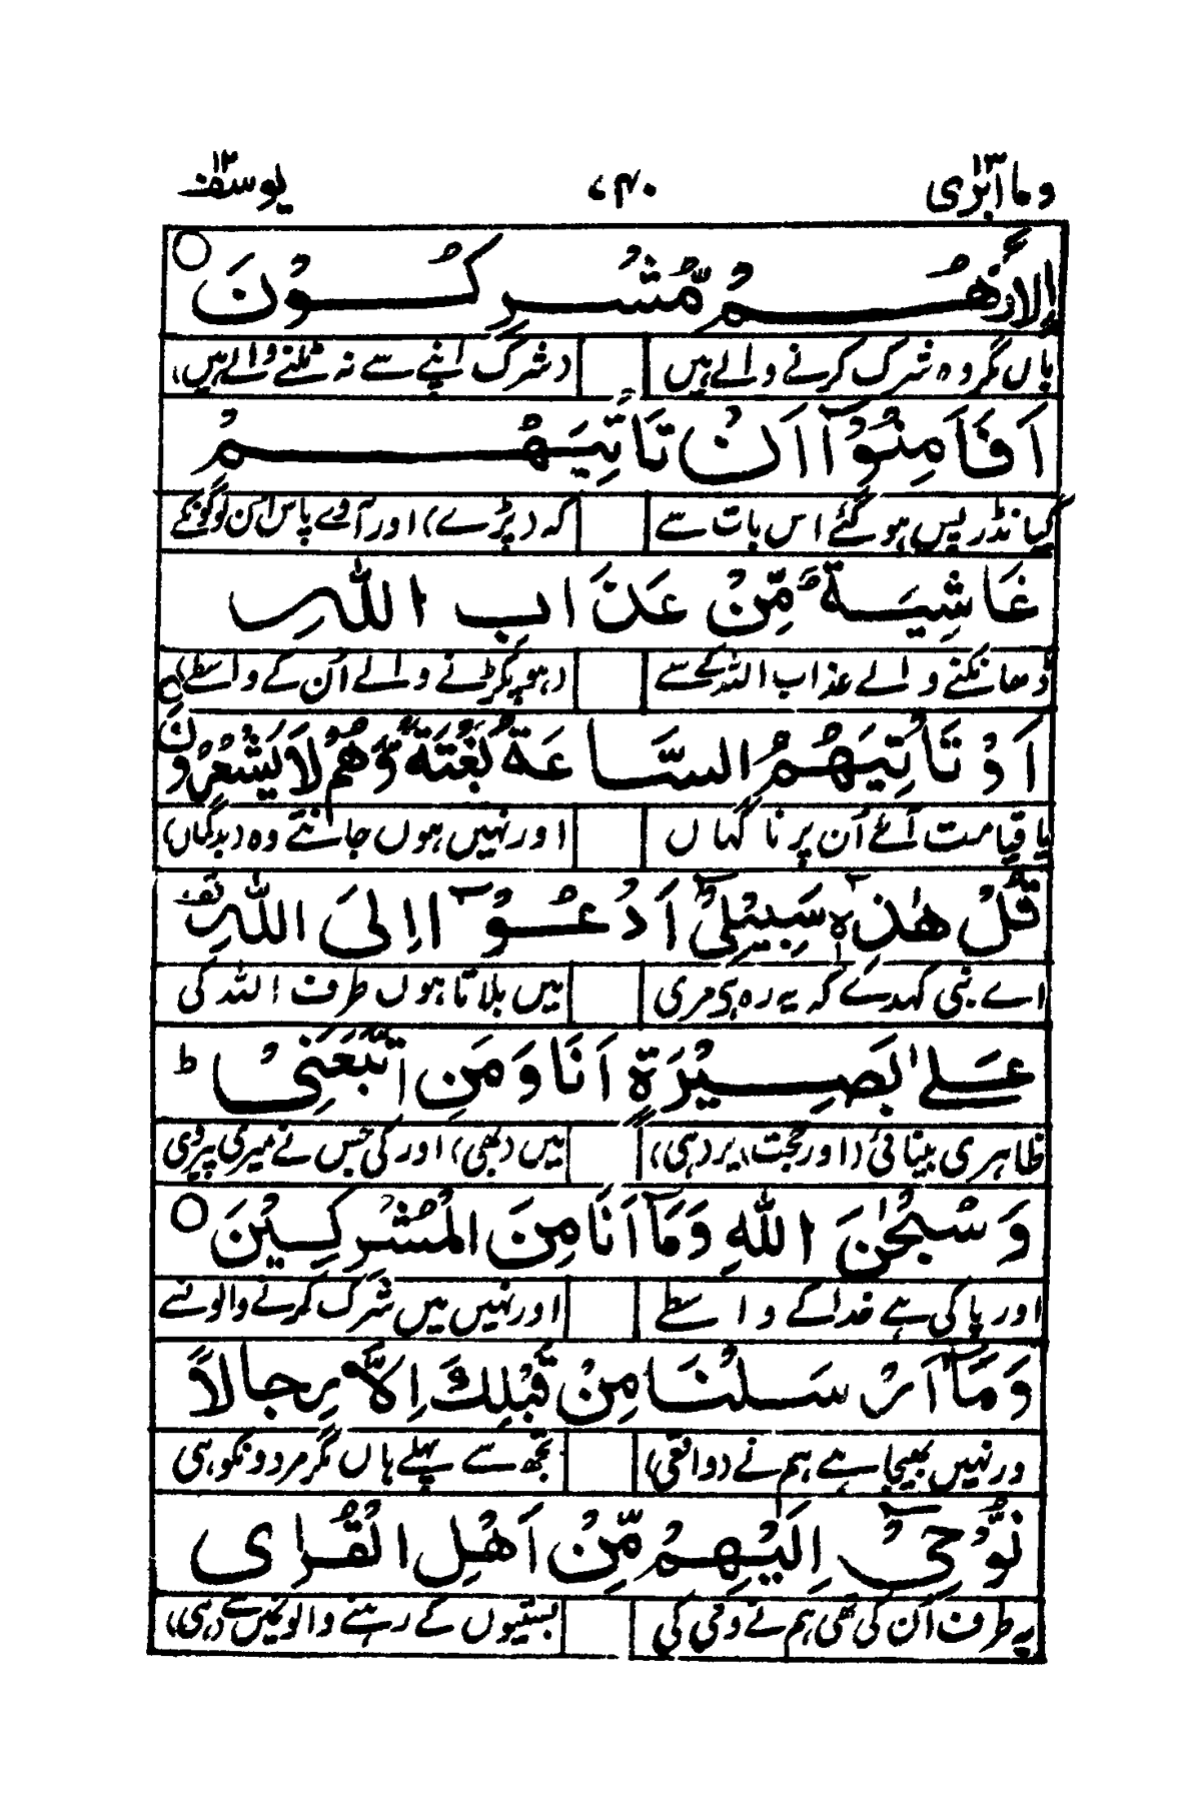 وما ابری ۱۳ ۷۴۰ یوسف ۱۲
اِلَّا وَهُمْ مُّشْرِكُوْنَ ○
ہاں مگر وہ شرک کرنے والے ہیں (شرک اپنے سے نہ ٹلنے والے ہیں)
اَفَاَمِنُوْٓا اَنْ تَاْتِيَهُمْ
کیا نڈر پس ہو گئے اس بات سے کہ (پڑے) اور آوے پاس ان لوگونکے
غَاشِيَةٌ مِّنْ عَذَابِ اللّٰهِ
ڈھانکنے والے عذاب اللہ کے سے (ہو پکڑنے والے اُن کے واسطے)
اَوْ تَاْتِيَهُمُ السَّاعَةُ بَغْتَةً وَّهُمْ لَا يَشْعُرُوْنَ
یا قیامت آئے اُن پر ناگہاں اور نہیں ہوں جانتے وہ (بدگماں)
قُلْ هٰذِهٖ سَبِيْلِيْٓ اَدْعُوْٓا اِلَى اللّٰهِ
اے نبی کہدے کہ یہ رہ ہی مری میں بلاتا ہوں طرف اللہ کی
عَلٰى بَصِيْرَةٍ اَنَا وَمَنِ اتَّبَعَنِيْ ط
ظاہری بینائی (اور حجت) پر (ہی) میں (بھی) اور کی جس نے میری پیروی
وَسُبْحٰنَ اللّٰهِ وَمَآ اَنَا مِنَ الْمُشْرِكِيْنَ ○
اور پاکی ہے خدا کے واسطے اور نہیں میں شرک کرنے والونسے
وَمَآ اَرْسَلْنَا مِنْ قَبْلِكَ اِلَّا رِجَالًا
ور نہیں بھیجا ہے ہم نے (واقعی) تجھ سے پہلے ہاں مگر مردونکو ہی
نُّوْحِيْٓ اِلَيْهِمْ مِّنْ اَهْلِ الْقُرٰى
یہ طرف اُن کی تھی ہم نے وحی کی بستیوں کے رہنے والو نمیں سے (ہی)